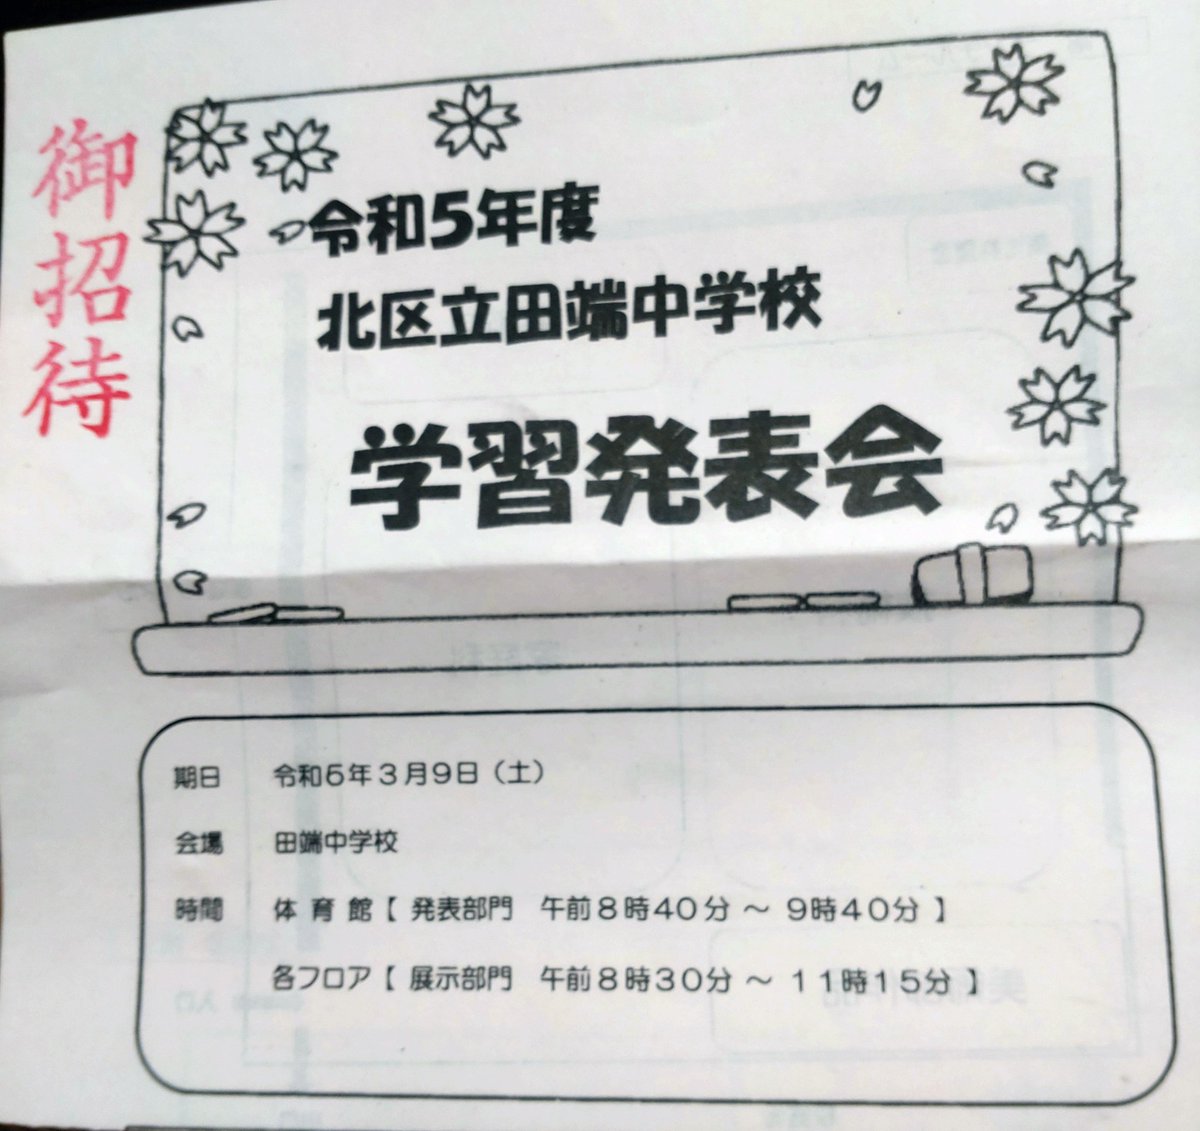 御招待
令和5年度
北区立田端中学校
学習発表会
期日 令和6年3月9日（土）
会場 田端中学校
時間 体育館【 発表部門 午前8時40分 ～ 9時40分 】
各フロア【 展示部門 午前8時30分 ～ 11時15分 】